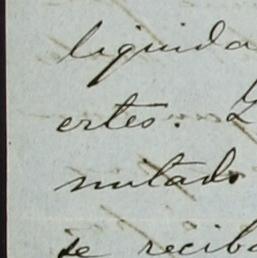 liquida
ertes.
mutado
se recibo